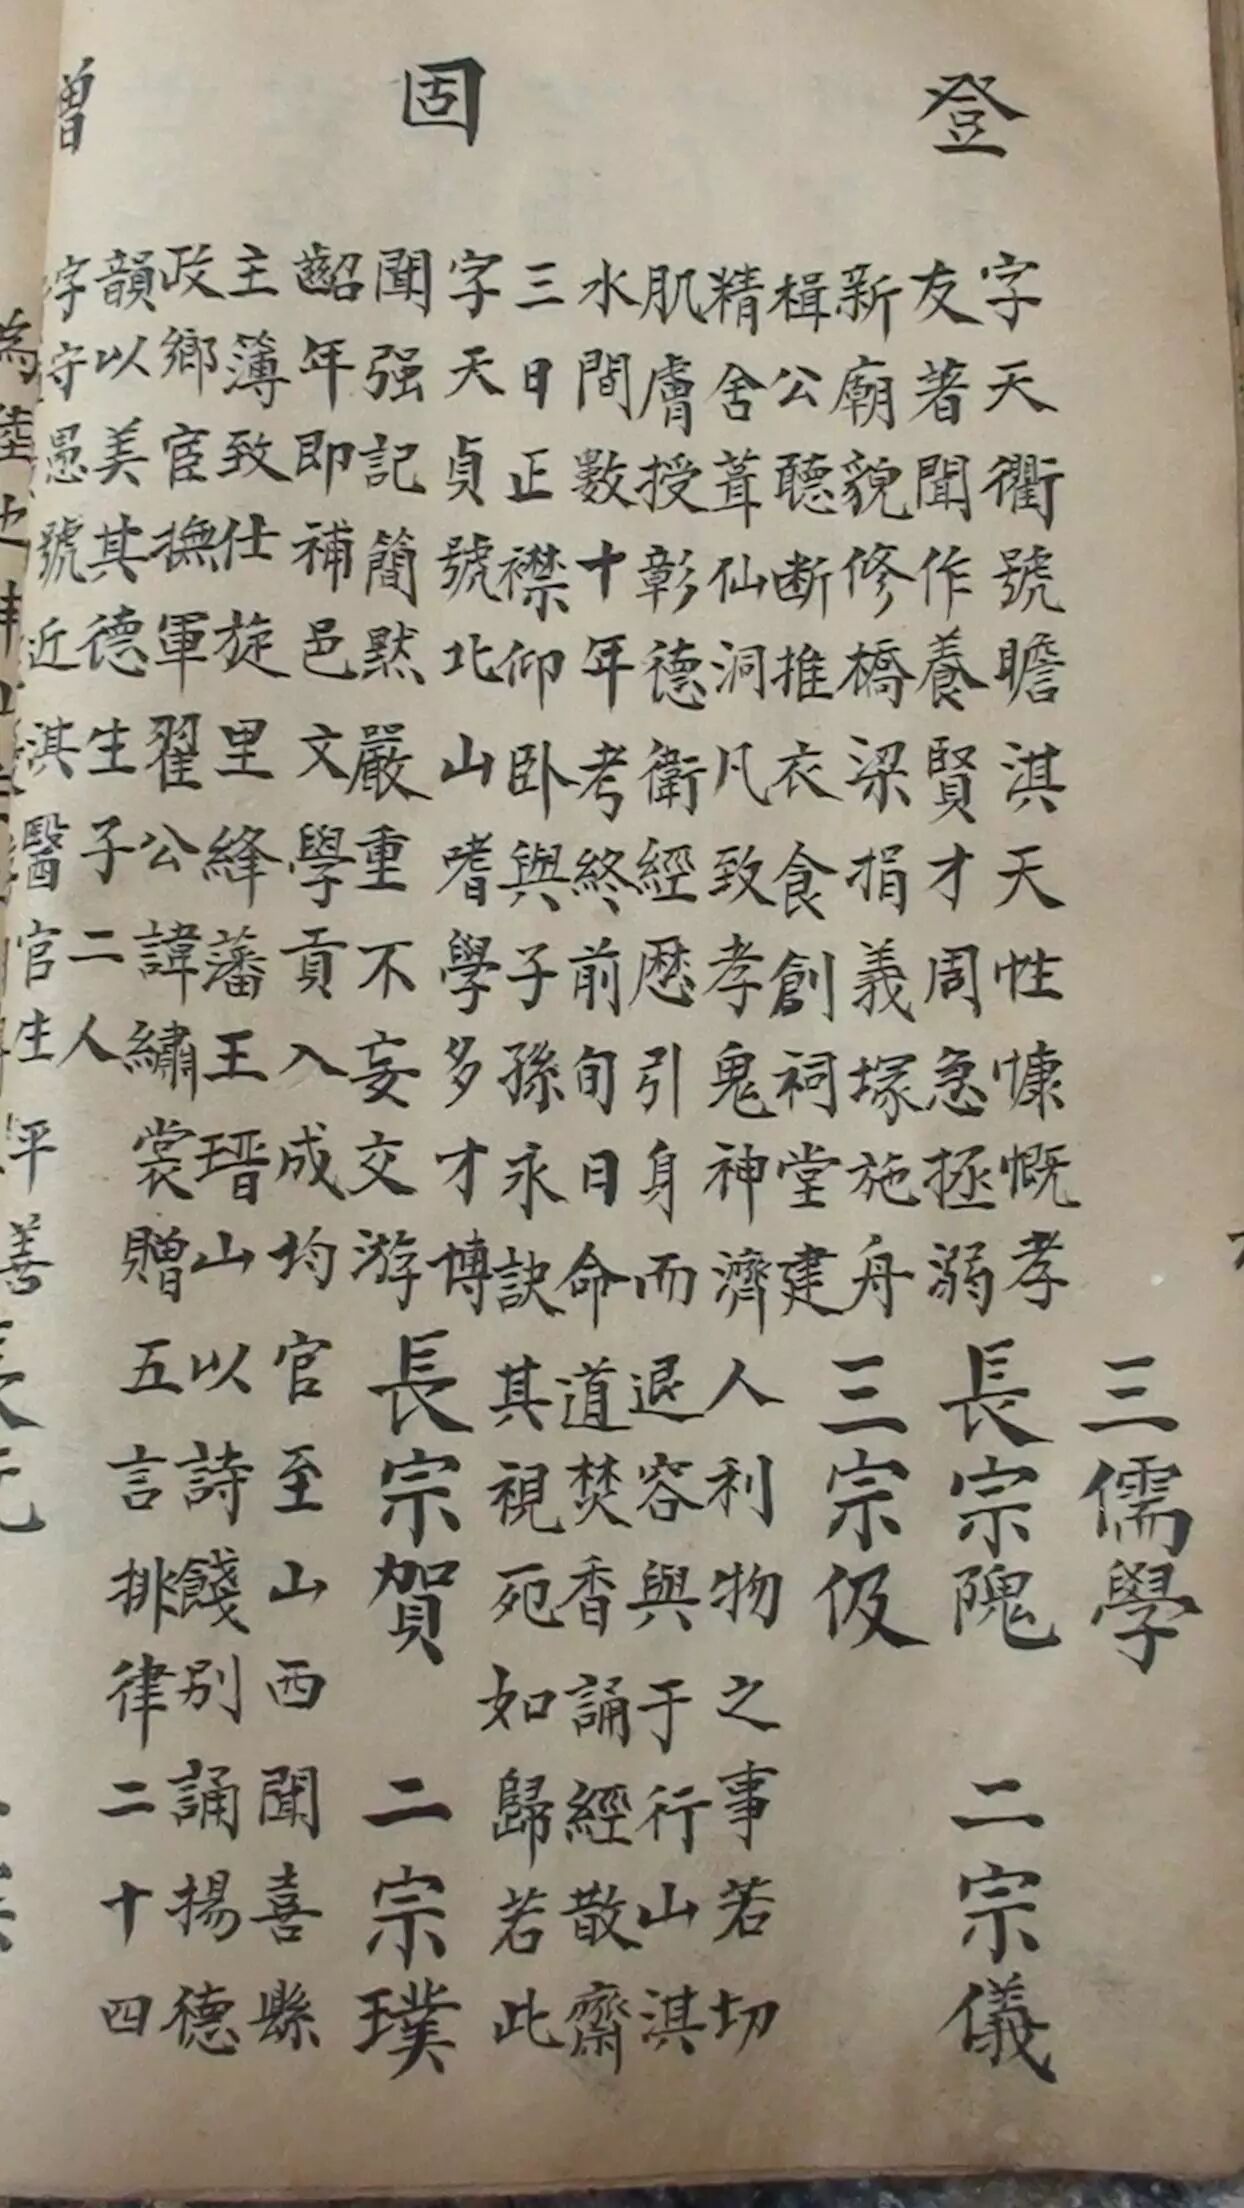 三儒學
登
字天衢號瞻淇天性慷慨孝
友著聞作養賢才周急拯溺 長宗隗 二宗儀
新廟貌修橋梁捐義塚施舟 三宗伋
楫公聽断推衣食創祠堂建
精舍葺仙洞凡致孝鬼神濟人利物之事若切
肌膚授彰德衛經歷引身而退容與于行山淇
水間數十年考終前旬日命道焚香誦經散齋
三日正襟仰卧與子孫永訣其視死如歸若此
固
字天貞號北山嗜學多才博
聞强記簡黙嚴重不妄交游 長宗賀 二宗璞
齠年即補邑文學貢入成均官至山西聞喜縣
主簿致仕旋里絳藩王瑨山以詩餞別誦揚德
政鄉宦撫軍翟公諱繡裳贈五言排律二十四
韻以美其德生子二人
字守愚號近淇醫官生平善